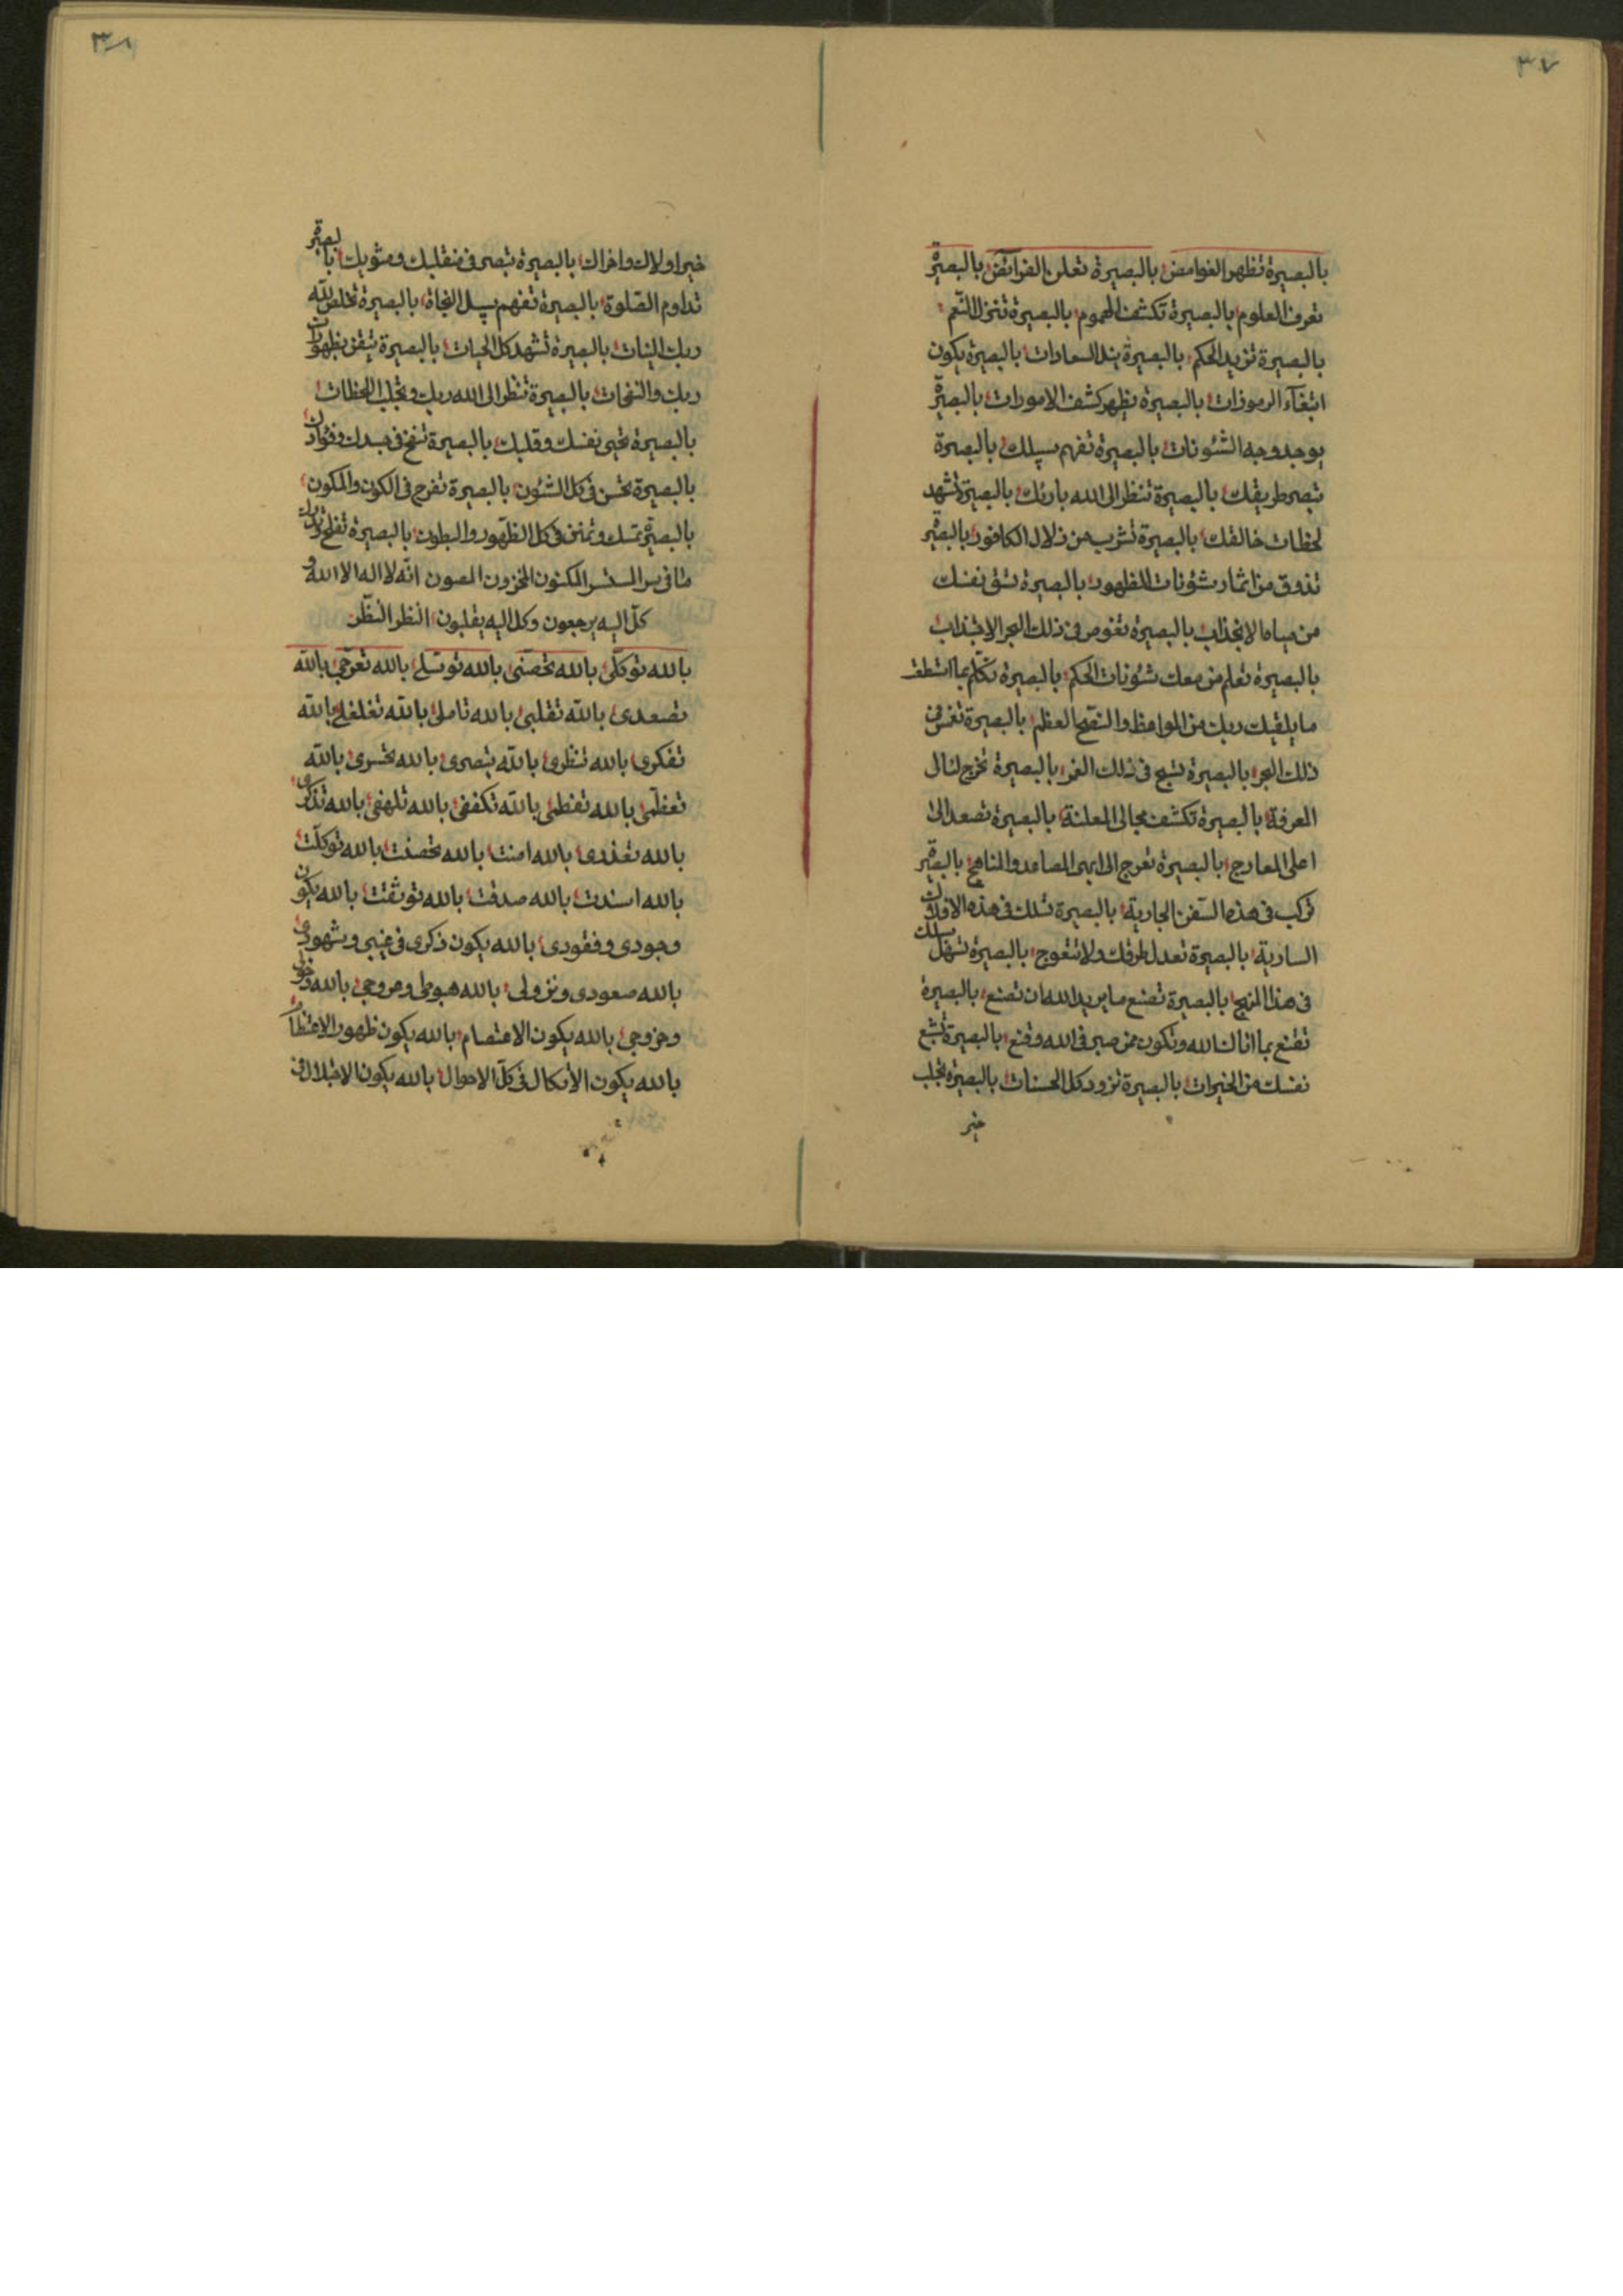 ٣٧
بالبصيرة تظهر الغوامض بالبصيرة تعلن الفرائض بالبصيرة
تعرف العلوم بالبصيرة تكشف الهموم بالبصيرة تنزل النّعم
بالبصيرة تزيد الحكم بالبصيرة السعادات بالبصيرة يكون
ابتغآء الرموزات بالبصيرة يظهر كشف الامورات بالبصيرة
يوجد وجه الشئونات بالبصيرة تفهم سبيلك بالبصيرة
تبصر طريقك بالبصيرة تنظر الى الله بارئك بالبصيرة تشهد
لحظات خالقك بالبصيرة تشرب من زلال الكافور بالبصيرة
تذوق من اثمار شؤنات الظهور بالبصيرة تسقى نفسك
من مياه الانجذاب بالبصيرة تغوص فى ذلك البحر الاجتذاب
بالبصيرة تعلم من معك شئونات الحكم بالبصيرة تكلّم بما استطعت
ما يلقيك ربك من المواعظ والنصح العظم بالبصيرة تغمس فى
ذلك البحر بالبصيرة تسبح فى ذلك الغمر بالبصيرة تخرج لئال
المعرفة بالبصيرة تكشف مجالى المعلنة بالبصيرة تصعد الى
اعلى المعارج بالبصيرة تعرج الى ابهى المصاعد والمناهج بالبصيرة
تركب فى هذه السّفن الجارية بالبصيرة تسلك فى هذه الافلاك
السارية بالبصيرة تعدل طرقك ولا تتعوج بالبصيرة تسهل سبلك
فى هذا المنهج بالبصيرة تصنع ما يريد الله ان تصنع بالبصيرة
تقنع بما انالك الله وتكون ممن صبر فى الله وقنع بالبصيرة تشبع
نفسك من الخيرات بالبصيرة تزود كل الحسنات بالبصيرة تجلب
خير
٣٨
خير اولاك واخراك بالبصيرة تبصر فى منقلبك ومثويك بالبصيرة
تداوم الصّلوة بالبصيرة تفهم سبل النجاة بالبصيرة تخلص للّه
ربك النيات بالبصيرة تشهد كل الحيات بالبصيرة تيقن بظهورات
ربك والنفحات بالبصيرة تنظر الى الله ربك وتجلب اللحظات
بالبصيرة تحيى نفسك وقلبك بالبصيرة تنفخ فى جسدك وفؤادك
بالبصيرة تحسن فى كل الشئون بالبصيرة تفرح فى الكون والمكون
بالبصيرة تمسك وتمنن فى كل الظّهور والبطون بالبصيرة تفلح
ما فى سر المستسر المكنون المخزون المصون انّه لا اله الا الله و
كلّ اليه يرجعون وكل اليه يقلبون النظر النظر
بالله توكّلى بالله تحصّنى بالله توسّلى بالله تعرّجى بالله
تصعدى بالله تقلبى بالله تاملى بالله تغلغلى بالله
تفكرى بالله تنظرى بالله تبصرى بالله تحسرى بالله
تعظّمى بالله تفطمى بالله تكففى بالله تلهفى بالله تذكرى
بالله تعذرى بالله امنت بالله تحصنت بالله توكّلت
بالله اسندت بالله صدقت بالله توثقت بالله يكون
وجودى وفقودى بالله يكون ذكرى فى غيبى وشهودى
بالله صعودى ونزولى بالله هبوطى وعروجى بالله دخولى
وخروجى بالله يكون الاعتصام بالله يكون ظهور الاعتظام
بالله يكون الاتكال فى كلّ الاحوال بالله يكون الاجلال فى